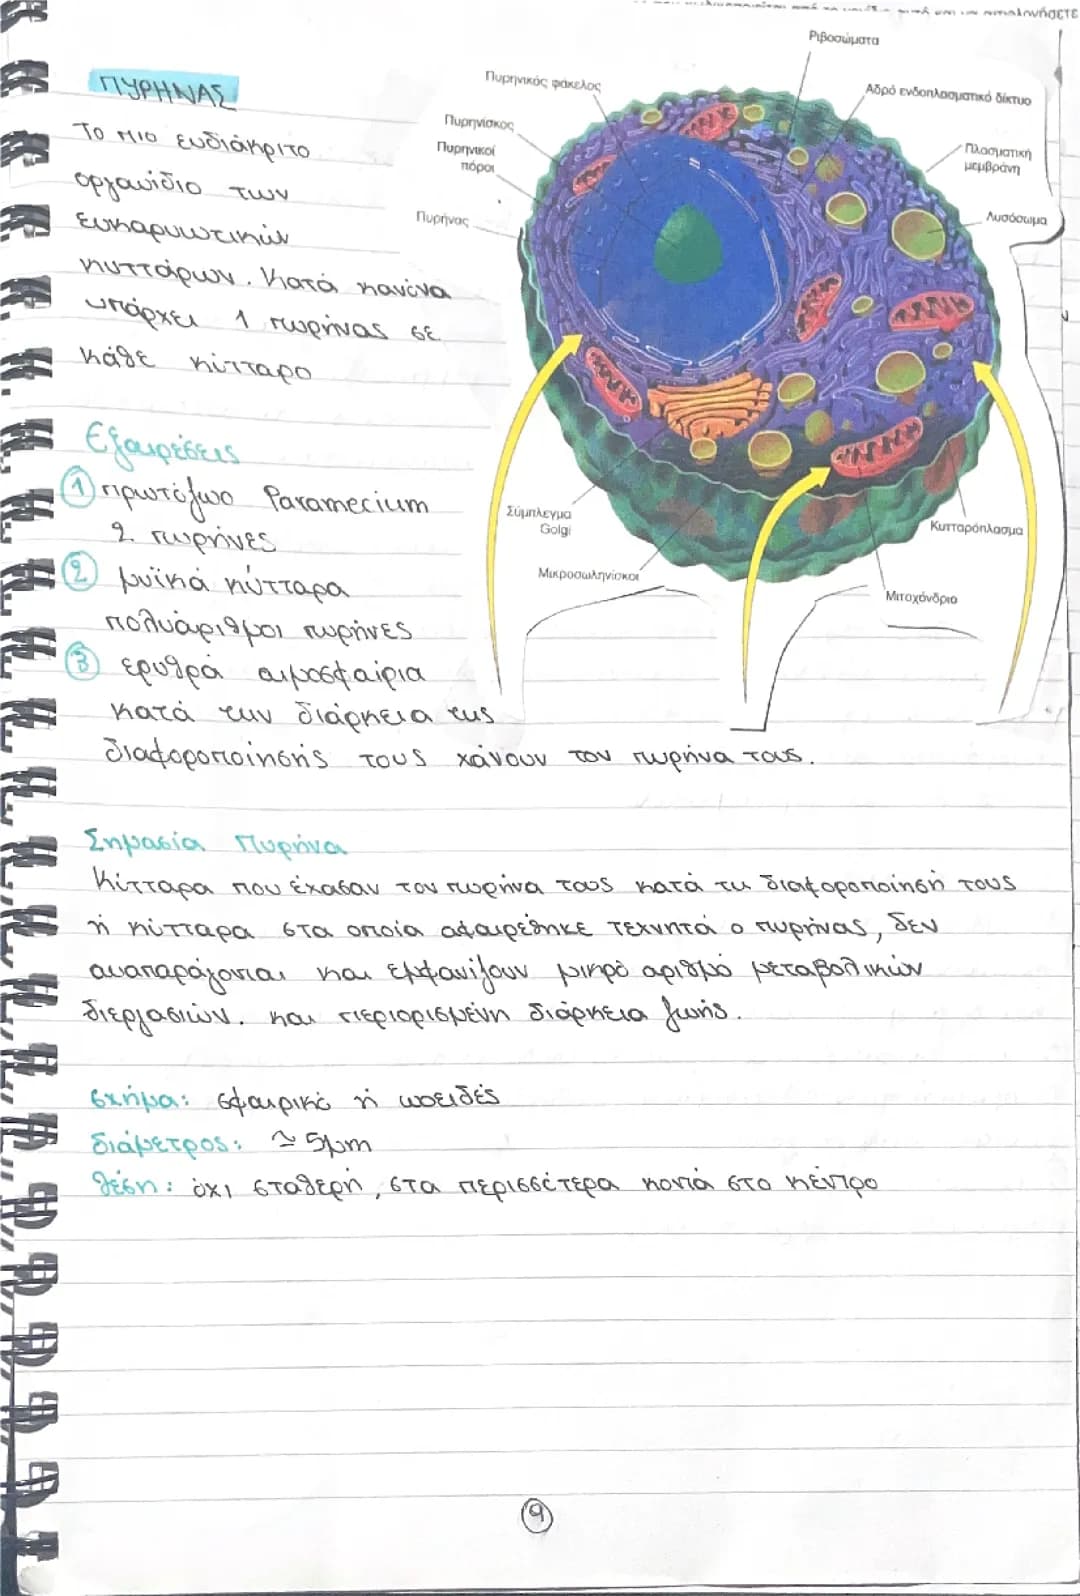 ΠΥΡΗΝΑΣ
Το πιο ευδιάκριτο
οργανίδιο των
ευκαρυωτικών
κυττάρων. Κατά κανόνα
υπάρχει 1 πυρήνας σε
κάθε κύτταρο
Εξαιρέσεις
1 πρωτόζωο Paramecium
2 πυρήνες
2 μυϊκά κύτταρα
πολυάριθμοι πυρήνες
3 ερυθρά αιμοσφαίρια
κατά την διάρκεια της
διαφοροποίησής τους χάνουν τον πυρήνα τους.
Ριβοσώματα
Πυρηνικός φάκελος
Αδρό ενδοπλασματικό δίκτυο
Πυρηνίσκος
Πυρηνικοί
πόροι
Πλασματική
μεμβράνη
Πυρήνας
Λυσόσωμα
Σύμπλεγμα
Golgi
Κυτταρόπλασμα
Μικροσωληνίσκοι
Μιτοχόνδριο
Σημασία Πυρήνα
Κύτταρα που έχασαν τον πυρήνα τους κατά τη διαφοροποίησή τους
ή κύτταρα στα οποία αφαιρέθηκε τεχνητά ο πυρήνας, δεν
αναπαράγονται και εμφανίζουν μικρό αριθμό μεταβολικών
διεργασιών. και περιορισμένη διάρκεια ζωής.
σχήμα: σφαιρικό ή ωοειδές
διάμετρος: ≃ 5μm
θέση: όχι σταθερή, στα περισσότερα κοντά στο κέντρο
9